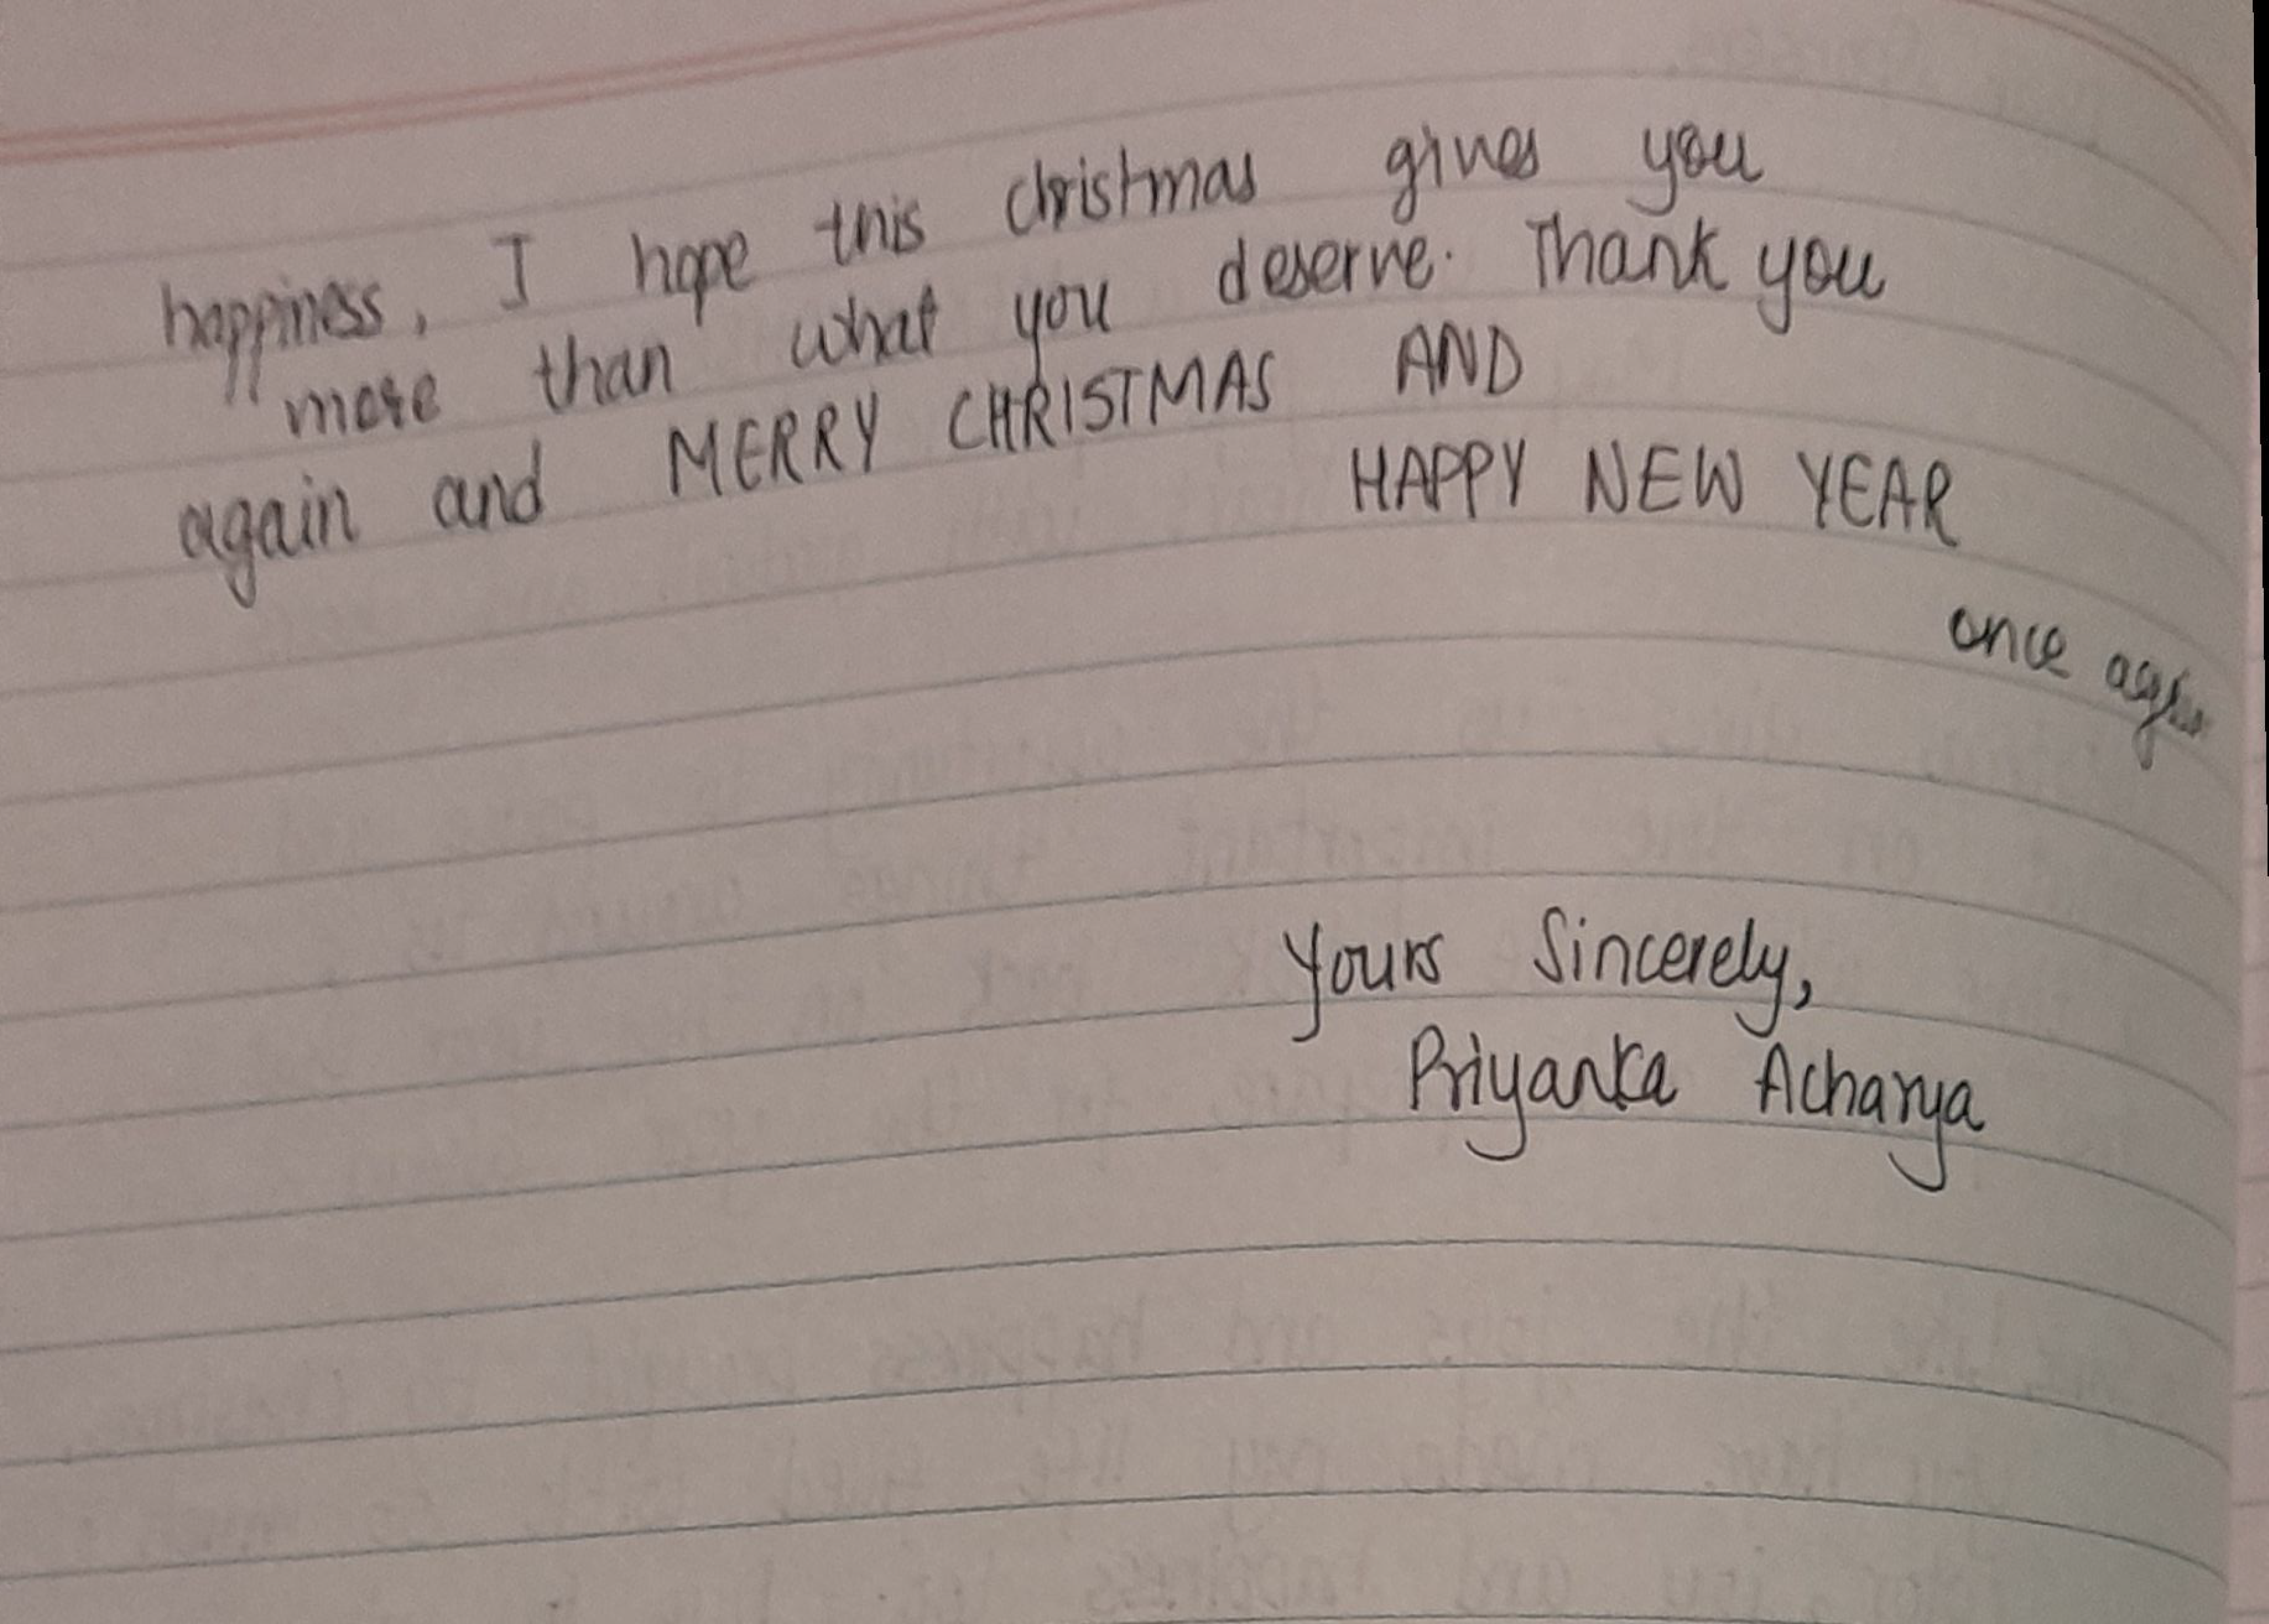 happiness, I hope this christmas gives you
more than what you deserve. Thank you
again and MERRY CHRISTMAS AND
HAPPY NEW YEAR
once again
Yours Sincerely,
Priyanka Acharya